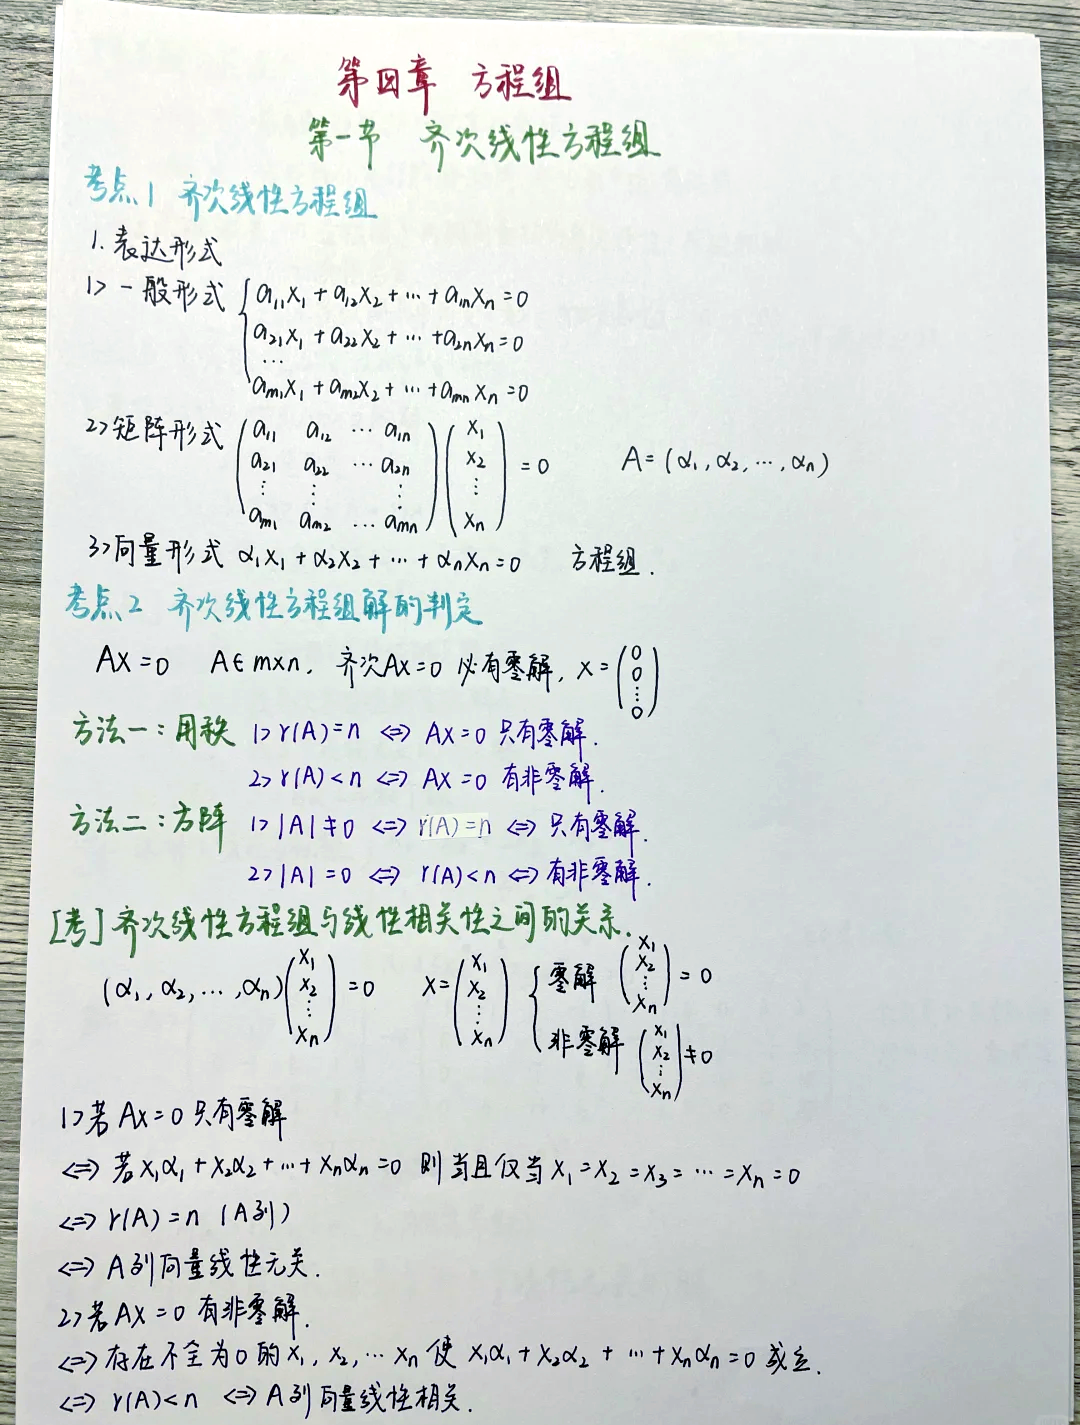 第四章 方程组
第一节 齐次线性方程组
考点1 齐次线性方程组
1.表达形式
1> 一般形式 { a₁₁x₁ + a₁₂x₂ + ⋯ + a₁ₙxₙ = 0
a₂₁x₁ + a₂₂x₂ + ⋯ + a₂ₙxₙ = 0
⋯
aₘ₁x₁ + aₘ₂x₂ + ⋯ + aₘₙxₙ = 0
2> 矩阵形式 ( a₁₁ a₁₂ ⋯ a₁ₙ ) ( x₁ )
( a₂₁ a₂₂ ⋯ a₂ₙ ) ( x₂ ) = 0 A = (α₁, α₂, ⋯, αₙ)
( ⋮ ⋮ ⋮ ) ( ⋮ )
( aₘ₁ aₘ₂ ⋯ aₘₙ ) ( xₙ )
3> 向量形式 α₁x₁ + α₂x₂ + ⋯ + αₙxₙ = 0 方程组.
考点2 齐次线性方程组解的判定
Ax = 0 A∈m×n, 齐次Ax=0 必有零解, x = (0 0 ⋮ 0)
方法一: 用秩 1> r(A)=n ⇔ Ax=0 只有零解.
2> r(A)<n ⇔ Ax=0 有非零解.
方法二: 方阵 1> |A|≠0 ⇔ r(A)=n ⇔ 只有零解.
2> |A|=0 ⇔ r(A)<n ⇔ 有非零解.
[考] 齐次线性方程组与线性相关性之间的关系.
(α₁, α₂, ⋯, αₙ) (x₁ x₂ ⋮ xₙ) = 0 x = (x₁ x₂ ⋮ xₙ) { 零解 (x₁ x₂ ⋮ xₙ) = 0
非零解 (x₁ x₂ ⋮ xₙ) ≠ 0
1> 若 Ax=0 只有零解
⇔ 若 x₁α₁ + x₂α₂ + ⋯ + xₙαₙ = 0 则当且仅当 x₁ = x₂ = x₃ = ⋯ = xₙ = 0
⇔ r(A) = n (A列)
⇔ A列向量线性无关.
2> 若 Ax=0 有非零解.
⇔ 存在不全为0的 x₁, x₂, ⋯ xₙ 使 x₁α₁ + x₂α₂ + ⋯ + xₙαₙ = 0 成立.
⇔ r(A)<n ⇔ A列向量线性相关.